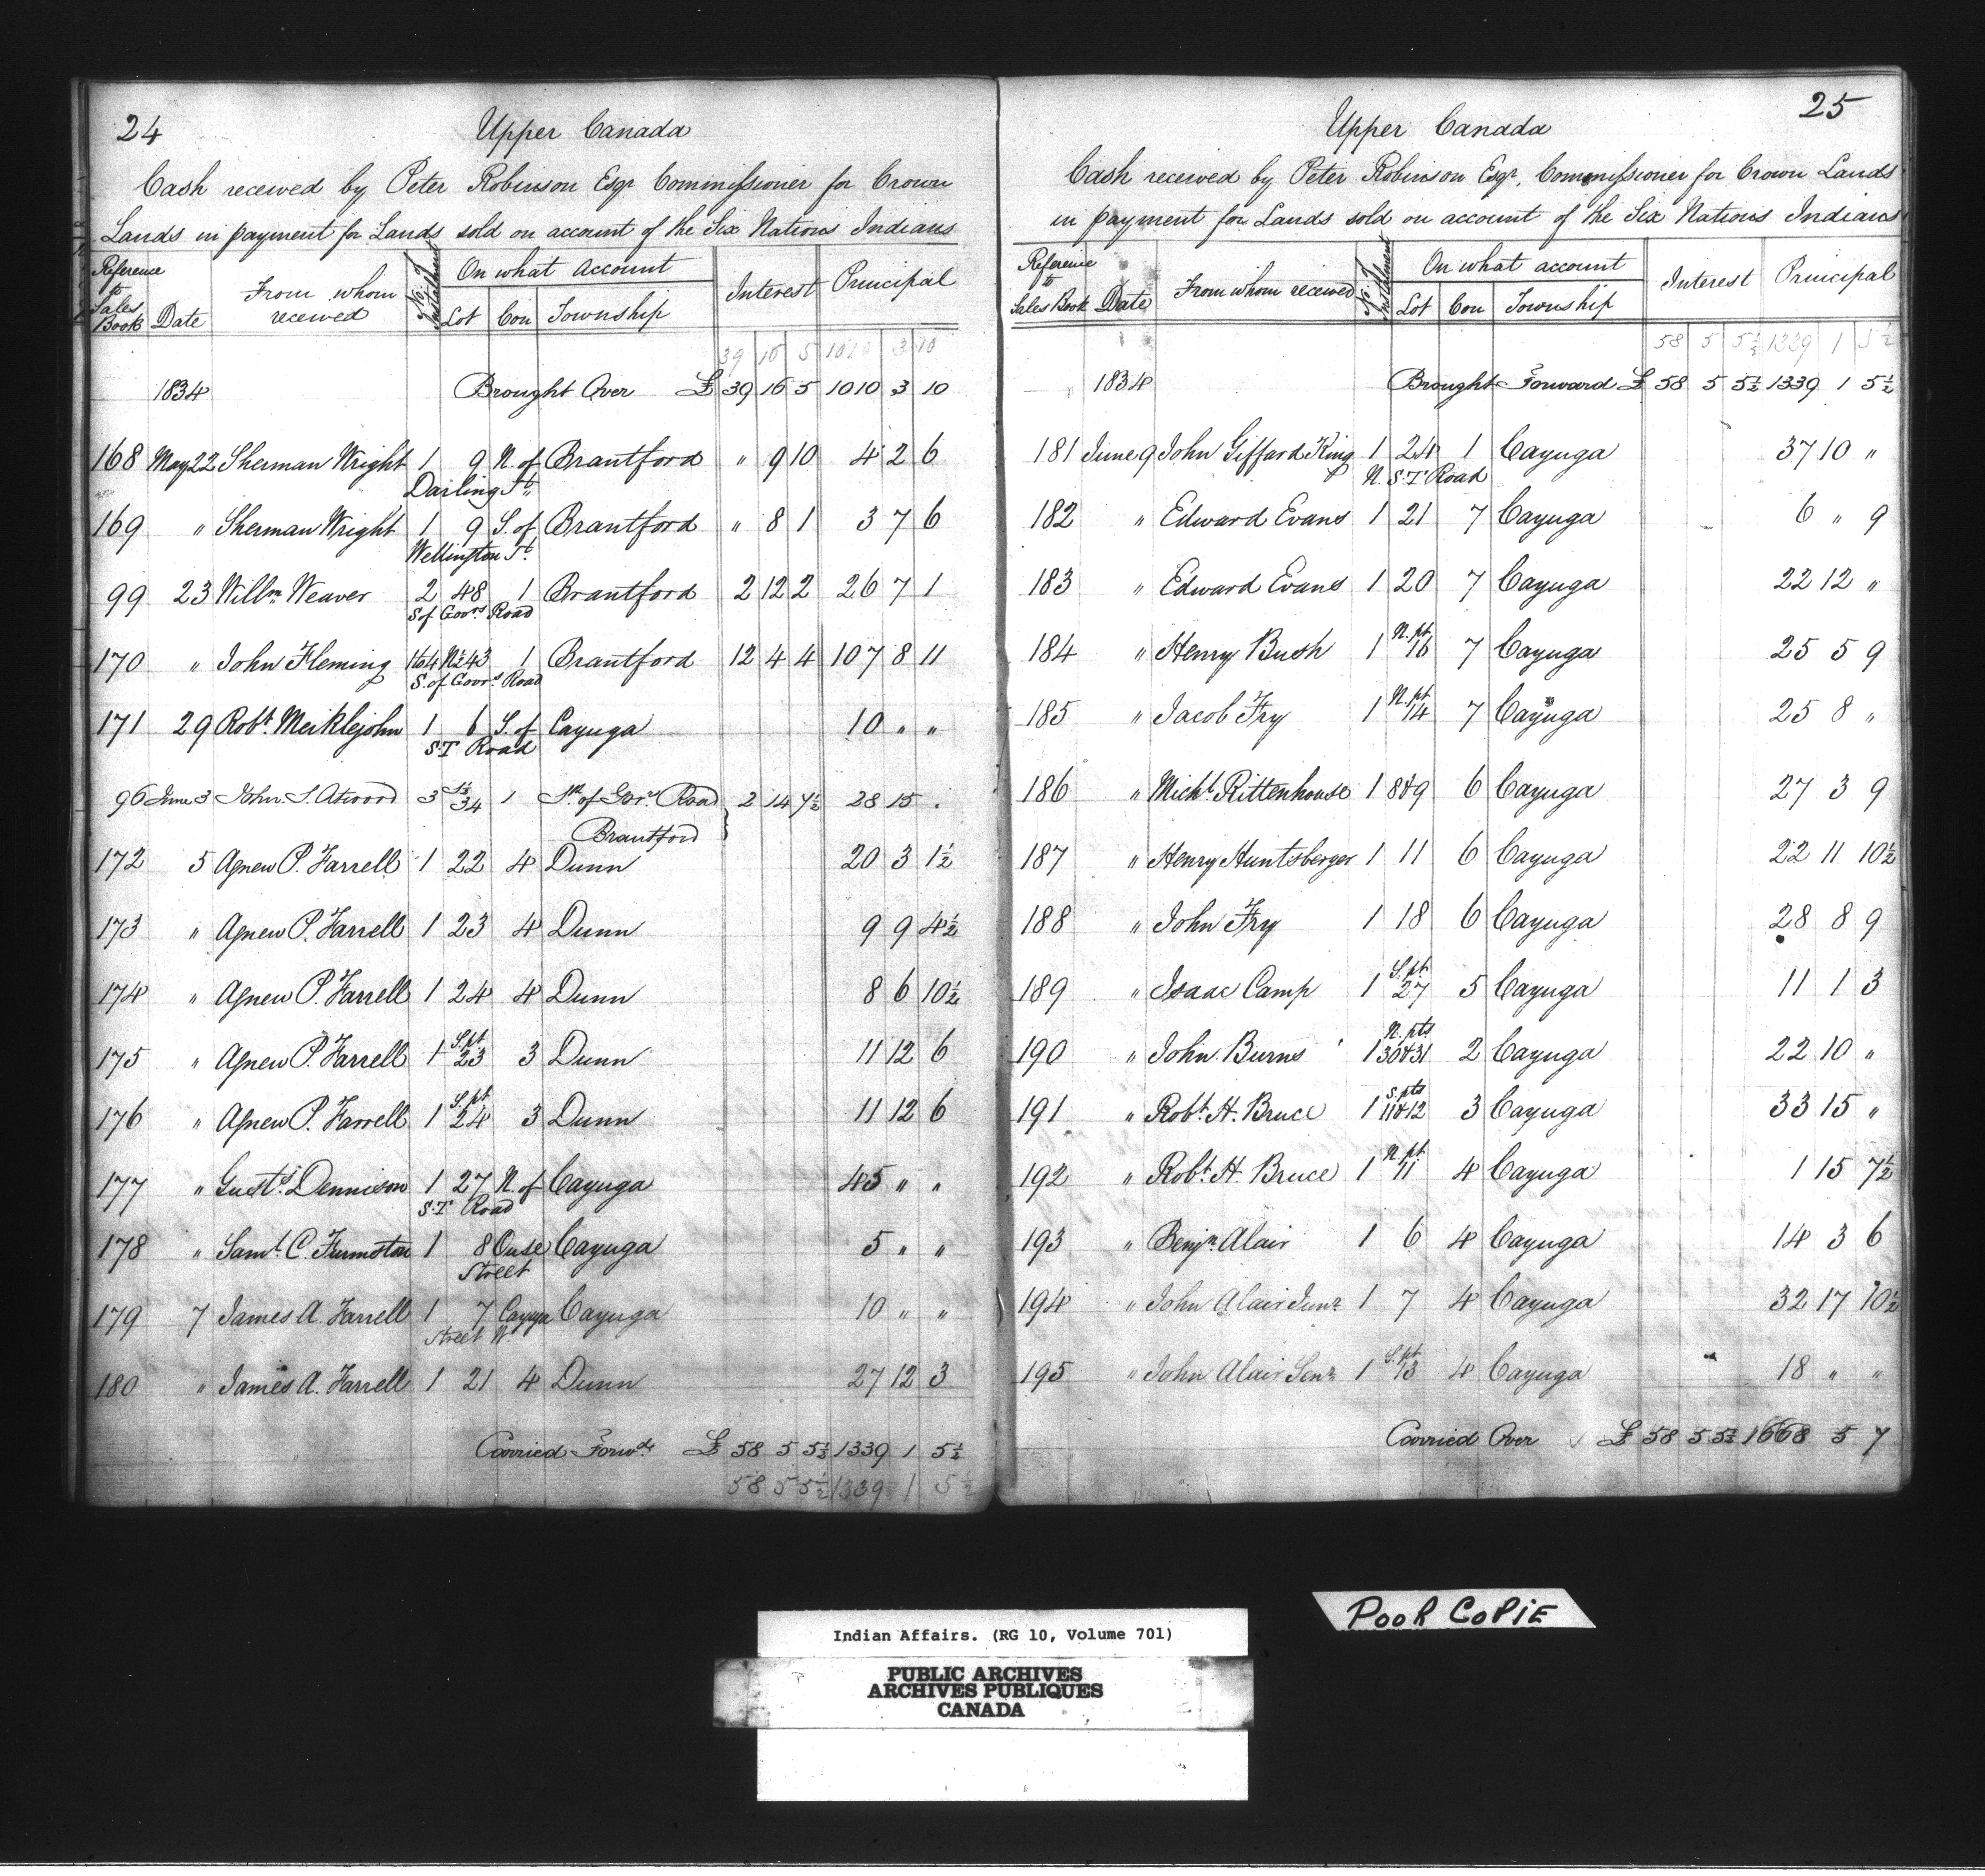 24
Upper Canada
Cash received by Peter Robinson Esqr Commissioner for Crown
Lands in payment for Lands sold on account of the Six Nations Indians
Reference to Sales Book Date From whom received No. of Instalment On what Account Lot Con Township Interest Principal
39 16 5 1010 3 10
1834 Brought Over £ 39 16 5 1010 3 10
168 May 22 Sherman Wright 1 9 N. of Brantford " 9 10 4 2 6
Darling St.
169 " Sherman Wright 1 9 S. of Brantford " 8 1 3 7 6
Wellington St.
99 23 Willm Weaver 2 48 1 Brantford 2 12 2 26 7 1
S of Govrs Road
170 " John Fleming 1to4 N½43 1 Brantford 12 4 4 107 8 11
S. of Govrs Road
171 29 Robt. Meiklejohn 1 6 S. of Cayuga 10 " "
S.T Road
96 June 3 John S. Atwood 3 S½ 34 1 Sth of Govr Road 2 14 7½ 28 15 .
Brantford
172 5 Agnew P. Farrell 1 22 4 Dunn 20 3 1½
173 " Agnew P. Farrell 1 23 4 Dunn 9 9 4½
174 " Agnew P. Farrell 1 24 4 Dunn 8 6 10½
175 " Agnew P. Farrell 1 S.pt 23 3 Dunn 11 12 6
176 " Agnew P. Farrell 1 S.pt 24 3 Dunn 11 12 6
177 " Gusts. Dennison 1 27 N. of Cayuga 45 " "
S.T Road
178 " Saml. C. Furmston 1 8 Ouse Cayuga 5 " "
Street
179 7 James A. Farrell 1 7 Cayuga Cayuga 10 " "
Street W.
180 " James A. Farrell 1 21 4 Dunn 27 12 3
Carried Forwd. £ 58 5 5½ 1339 1 5½
58 5 5½ 1339 1 5½
25
Upper Canada
Cash received by Peter Robinson Esqr. Commissioner for Crown Lands
in payment for Lands sold on account of the Six Nations Indians
Reference to Sales Book Date From whom received No. of Instalment On what account Lot Con Township Interest Principal
58 5 5½ 1339 1 5½
" 1834 Brought Forward £ 58 5 5½ 1339 1 5½
181 June 9 John Giffard King 1 24 1 Cayuga 37 10 "
N. S.T Road
182 " Edward Evans 1 21 7 Cayuga 6 " 9
183 " Edward Evans 1 20 7 Cayuga 22 12 "
184 " Henry Bush 1 N. pt 16 7 Cayuga 25 5 9
185 " Jacob Fry 1 N. pt 14 7 Cayuga 25 8 "
186 " Michl. Rittenhouse 1 8&9 6 Cayuga 27 3 9
187 " Henry Huntsberger 1 11 6 Cayuga 22 11 10½
188 " John Fry 1 18 6 Cayuga 28 8 9
189 " Isaac Camp 1 S. pt 27 5 Cayuga 11 1 3
190 " John Burns 1 N. pts 30&31 2 Cayuga 22 10 "
191 " Robt. H. Bruce 1 S. pts 11&12 3 Cayuga 33 15 "
192 " Robt. H. Bruce 1 N. pt 11 4 Cayuga 1 15 7½
193 " Benjn. Alair 1 6 4 Cayuga 14 3 6
194 " John Alair Junr 1 7 4 Cayuga 32 17 10½
195 " John Alair Senr 1 S. pt 13 4 Cayuga 18 " "
Carried Over £ 58 5 5½ 1668 5 7
POOR COPIE
Indian Affairs. (RG 10, Volume 701)
PUBLIC ARCHIVES
ARCHIVES PUBLIQUES
CANADA